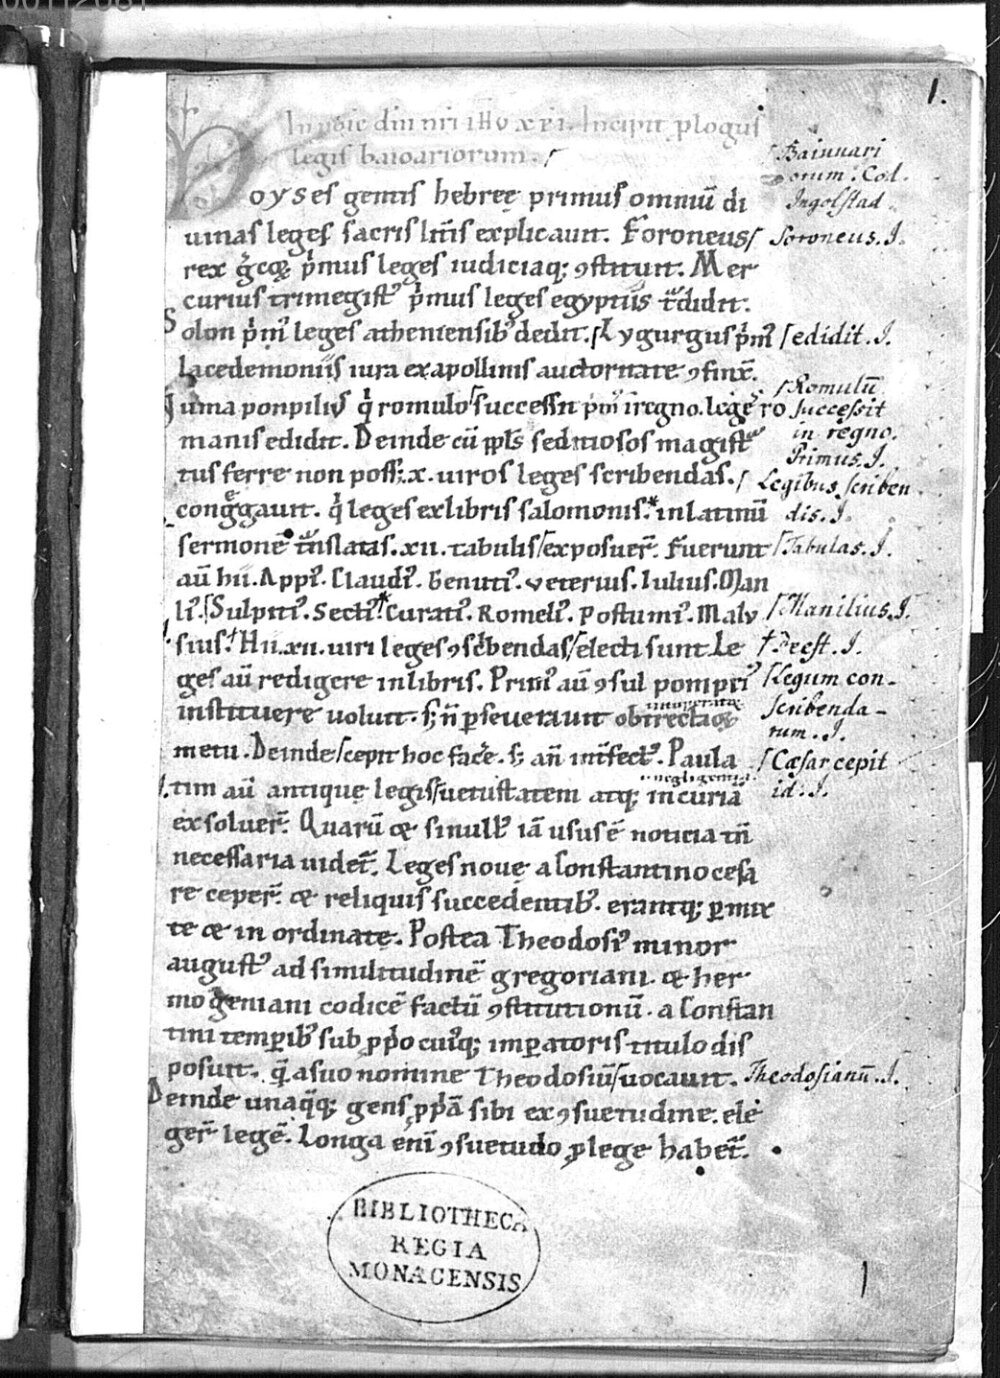 1.
In noīe dn̄i nr̄i ihū xp̄i. Incipit ꝓlogus
legis baioariorum.
Moyses gentis hebreę primus omniū di
uinas leges sacris litt̄is explicauit. Foroneus
rex g̃coꝝ p̄mus leges iudiciaq; ꝯstituit. Mer
curius trimegist᾿ p̄mus leges egyptiis t̃didit.
Solon p̄m᾿ leges atheniensib᾿ dedit. Lygurgus p̄m᾿
lacedemoniis iura ex apollinis auctoritate ꝯfinx̄.
Numa ponpiliꝰ q̇ romulo successit p̄m᾿ i regno. leges ro
manis edidit. Deinde cū ppl̄s seditiosos magist᾿
tus ferre non poss;. x. uiros leges scribendas.
cong̃gauit. q̇ leges ex libris salomonis.* in latinū
sermonē t̃nslatas. xii. tabulis exposuer̄. Fuerunt
aū hii. Appi᾿. Claudi᾿. Genuti᾿. veterius. Iulius. Man
li᾿. Sulpiti᾿. Secti᾿.* Curati᾿. Romeli᾿. Postumi᾿. Malv
sius.† Hii. xii. uiri leges ꝯsc̄bendas electi sunt. Le
ges aū redigere in libris. Prim᾿ aū ꝯsul pompei᾿
instituere uoluit. s; n̄ ꝑseuerauit obtrectatoꝝ
metu. Deinde cepit hoc fac̄e. s; an̄ int̄fect᾿. Paula
negligentia
tim aū antique legis uetustatem atq; incuriā
exsoluer̄. Quarū & si null᾿ iā usus ē noticia tn̄
necessaria uidet̄. Leges nove a Constantino cesa
re ceper̄. & reliquis succedentib᾿. erantq; ꝑmix
te & in ordinate. Postea Theodosi᾿ minor
august᾿ ad similitudinē gregoriani. & her
mogeniani codicē factū ꝯstitutionū. a Constan
tini temꝑib᾿ sub ꝓp̄o cui᾿q; imꝑatoris titulo dis
posuit. q̄ a suo nomine Theodosiū uocauit.
Deinde unaq̄q; gens ꝓp̄ā sibi ex ꝯsuetudine. ele
ger̄ legē. Longa eni᾿ ꝯsuetudo ꝓ lege habet̄.
Baiuuari
orum. Cod.
Ingolstad.
Soroneus. J.
edidit. J.
Romulū
successit
in regno.
Primus. J.
Legibus scriben
dis. J.
Tabulas. J.
Manilius. J.
† Deest. J.
Legum con-
scribenda-
rum. J.
Cæsar cepit
id. J.
Theodosianū. J.
BIBLIOTHECA
REGIA
MONACENSIS